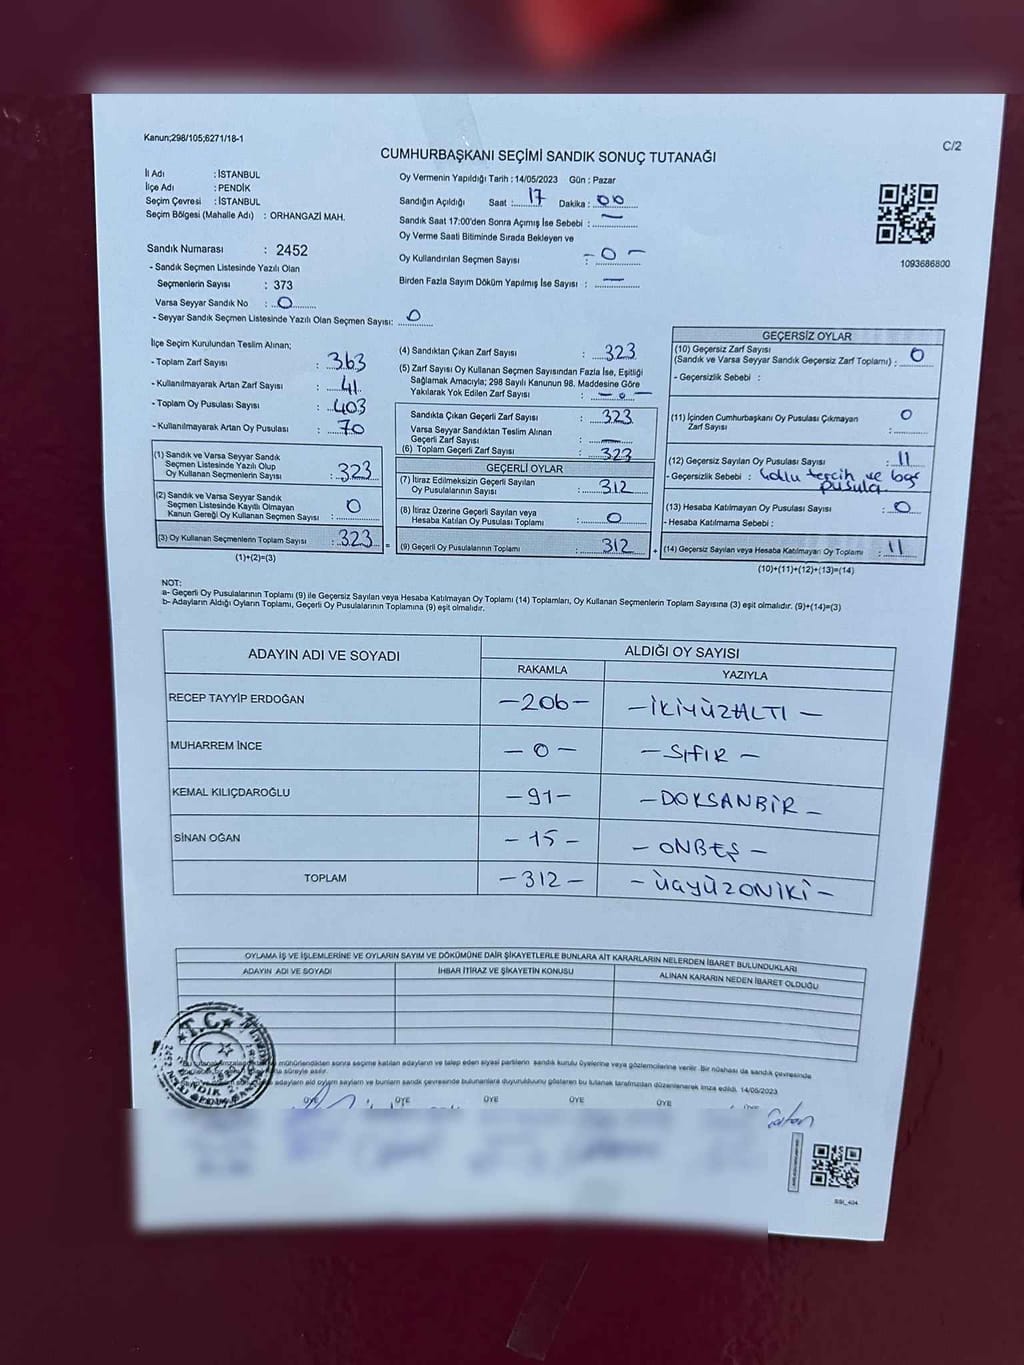 Kanun;298/105;6271/18-1
C/2
CUMHURBAŞKANI SEÇİMİ SANDIK SONUÇ TUTANAĞI
İl Adı : İSTANBUL
İlçe Adı : PENDİK
Seçim Çevresi : İSTANBUL
Seçim Bölgesi (Mahalle Adı) : ORHANGAZİ MAH.
Sandık Numarası : 2452
- Sandık Seçmen Listesinde Yazılı Olan
Seçmenlerin Sayısı : 373
Varsa Seyyar Sandık No : 0
- Seyyar Sandık Seçmen Listesinde Yazılı Olan Seçmen Sayısı: 0
Oy Vermenin Yapıldığı Tarih : 14/05/2023 Gün : Pazar
Sandığın Açıldığı Saat : 17 Dakika : 00
Sandık Saat 17:00'den Sonra Açımış İse Sebebi : —
Oy Verme Saati Bitiminde Sırada Bekleyen ve
Oy Kullandırılan Seçmen Sayısı : - 0 -
Birden Fazla Sayım Döküm Yapılmış İse Sayısı : —
1093686800
İlçe Seçim Kurulundan Teslim Alınan;
- Toplam Zarf Sayısı : 363
- Kullanılmayarak Artan Zarf Sayısı : 41
- Toplam Oy Pusulası Sayısı : 403
- Kullanılmayarak Artan Oy Pusulası : 70
(1) Sandık ve Varsa Seyyar Sandık
Seçmen Listesinde Yazılı Olup
Oy Kullanan Seçmenlerin Sayısı : 323
(2) Sandık ve Varsa Seyyar Sandık
Seçmen Listesinde Kayıtlı Olmayan
Kanun Gereği Oy Kullanan Seçmen Sayısı : 0
(3) Oy Kullanan Seçmenlerin Toplam Sayısı : 323
(1)+(2)=(3)
(4) Sandıktan Çıkan Zarf Sayısı : 323
(5) Zarf Sayısı Oy Kullanan Seçmen Sayısından Fazla İse, Eşitliği
Sağlamak Amacıyla; 298 Sayılı Kanunun 98. Maddesine Göre
Yakılarak Yok Edilen Zarf Sayısı : - 0 -
Sandıkta Çıkan Geçerli Zarf Sayısı : 323
Varsa Seyyar Sandıktan Teslim Alınan
Geçerli Zarf Sayısı : —
(6) Toplam Geçerli Zarf Sayısı : 323
GEÇERLİ OYLAR
(7) İtiraz Edilmeksizin Geçerli Sayılan
Oy Pusulalarının Sayısı : 312
(8) İtiraz Üzerine Geçerli Sayılan veya
Hesaba Katılan Oy Pusulası Toplamı : 0
(9) Geçerli Oy Pusulalarının Toplamı : 312
GEÇERSİZ OYLAR
(10) Geçersiz Zarf Sayısı
(Sandık ve Varsa Seyyar Sandık Geçersiz Zarf Toplamı) : 0
- Geçersizlik Sebebi :
(11) İçinden Cumhurbaşkanı Oy Pusulası Çıkmayan
Zarf Sayısı : 0
(12) Geçersiz Sayılan Oy Pusulası Sayısı : 11
- Geçersizlik Sebebi : çoklu tercih ve boş
pusula
(13) Hesaba Katılmayan Oy Pusulası Sayısı : 0
- Hesaba Katılmama Sebebi :
(14) Geçersiz Sayılan veya Hesaba Katılmayan Oy Toplamı : 11
(10)+(11)+(12)+(13)=(14)
NOT:
a- Geçerli Oy Pusulalarının Toplamı (9) ile Geçersiz Sayılan veya Hesaba Katılmayan Oy Toplamı (14) Toplamları, Oy Kullanan Seçmenlerin Toplam Sayısına (3) eşit olmalıdır. (9)+(14)=(3)
b- Adayların Aldığı Oyların Toplamı, Geçerli Oy Pusulalarının Toplamına (9) eşit olmalıdır.
ADAYIN ADI VE SOYADI
ALDIĞI OY SAYISI
RAKAMLA YAZIYLA
RECEP TAYYİP ERDOĞAN -206- -İKİYÜZALTI-
MUHARREM İNCE -0- -SIFIR-
KEMAL KILIÇDAROĞLU -91- -DOKSANBİR-
SİNAN OĞAN -15- -ONBEŞ-
TOPLAM -312- -ÜÇYÜZONİKİ-
OYLAMA İŞ VE İŞLEMLERİNE VE OYLARIN SAYIM VE DÖKÜMÜNE DAİR ŞİKAYETLERLE BUNLARA AİT KARARLARIN NELERDEN İBARET BULUNDUKLARI
ADAYIN ADI VE SOYADI İHBAR İTİRAZ VE ŞİKAYETİN KONUSU ALINAN KARARIN NEDEN İBARET OLDUĞU
mühürlendikten sonra seçime katılan adayların ve talep eden siyasi partilerin sandık kurulu üyelerine veya gözlemcilerine verilir. Bir nüshası da sandık çevresinde
süreyle asılır.
adayların aldığı oyların sayılarını ve bunların sandık çevresinde bulunanlara duyurulduğunu gösteren bu tutanak tarafımızdan düzenlenerek imza edildi. 14/05/2023
T.C.
PENDİK
ÜYE ÜYE ÜYE ÜYE ÜYE ÜYE